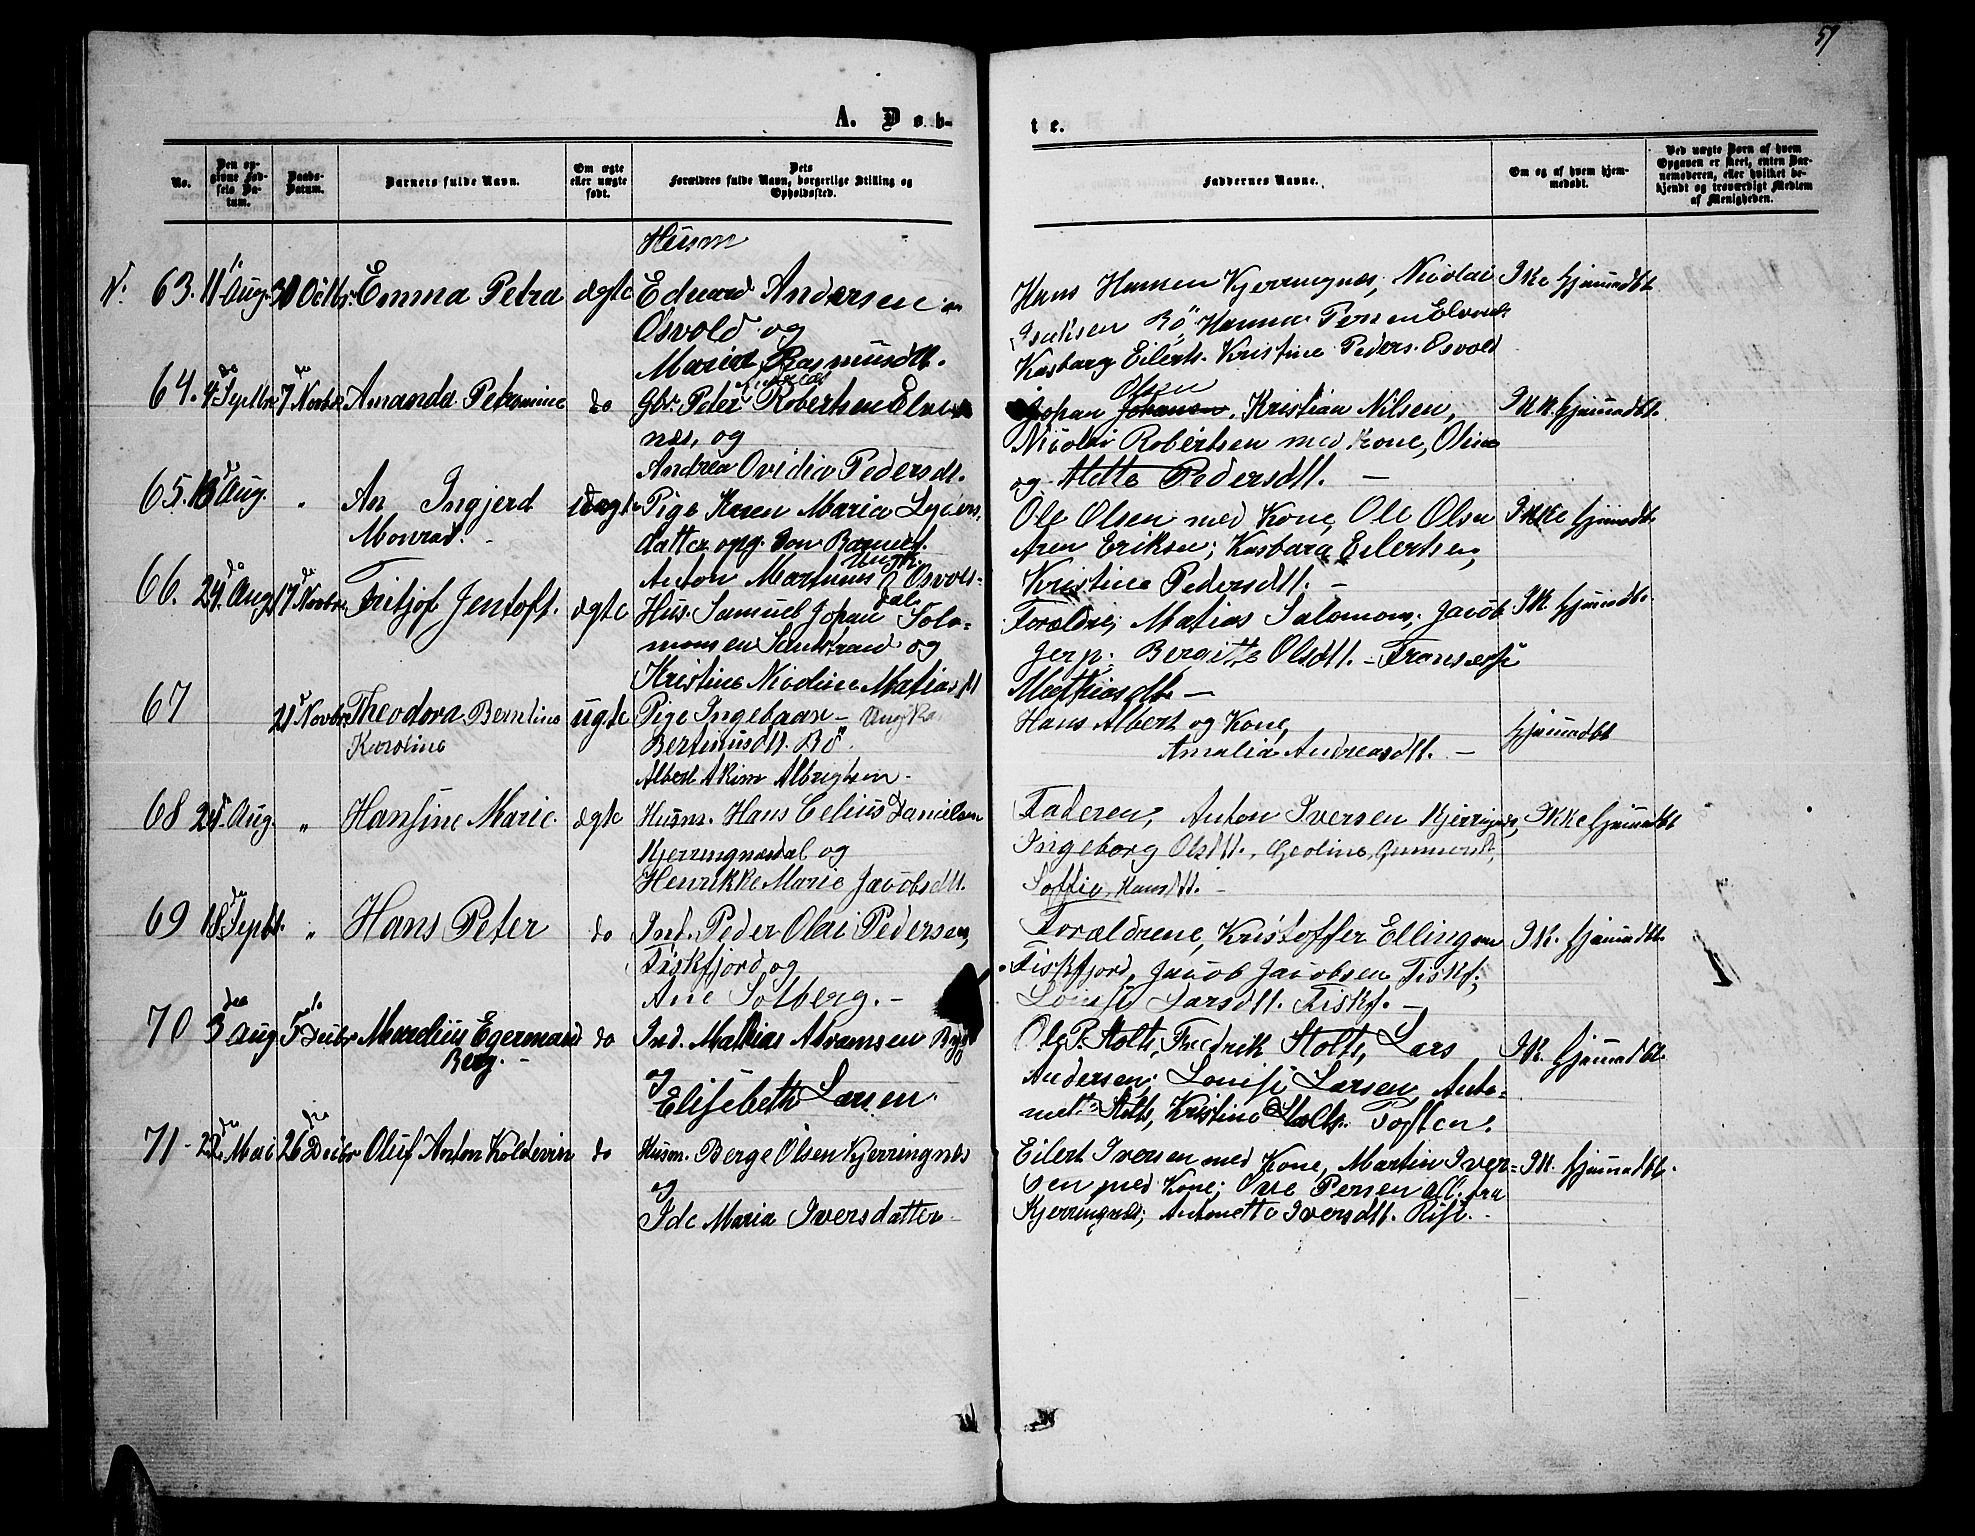 59
A. Døb-
te.
No.
Den opgivne Fødsels Datum.
Daabs-Datum.
Barnets fulde Navn.
Om ægte eller uægte født.
Dets Forældres fulde Navn, borgerlige Stilling og Opholdssted.
Faddernes Navne.
Om og af hvem hjemmedøbt.
Ved uægte Børn af hvem Opgaven er skeet, enten Barnemoderen, eller hvilket bekjendt og troværdigt Medlem af Menigheden.
Husm
N. 63. 11 Aug. Octbr. Emma Petra ægte Eduard Andersen
Osvold og
Maria Rasmusdtt.
Hans Hansen Kjerringnæs, Nicolai
Isaksen Bö, Hanna Persen
Kasbara Eilerts. Kristine Peders. Osvold
Ikke hjemmedbt
64. 4 Septbr 7 Novbr Amanda Petromine do Gbr. Peter Robertsen Elvenæs, og
Andrea Ovidia Pedersdt.
Olsen
Johan Johansen, Kristian Nilsen,
Nicolai Robertsen med Kone, Olina
og Mette Pedersdtt. —
Ikk hjemmedbt.
65. 13 Aug. " An Ingjerd
Monrad. uægte Pige Karen Maria
datter opg. Son Barnef.
Anton Martinus Osvold
Ole Olsen med Kone, Ole Olsen
Aren Eriksen; Kasbara Eilertsen,
Kristine Pedersdtt. —
Ikke hjemmedbt.
66. 29. Aug 17 Novbr Fritjof Jentoft. ægte Hus. Samuel Johan Salomonsen Sandstrand og
Kristine Nicoline Matiasdt
Forældre; Matias Salomons; Jacob
Jesp; Bergitte Olsdtt. —
Mathiasdtr —
Ik hjemmedbt.
67 21 Novbr Theodora Berntine
Karoline uægte Pige Ingebaar —
Bertinusdtt. Bö.
Albert Akim Albrigtsen —
Hans Albert og Kone,
Amalia Andreasdtt. —
hjemmedbt
68 24 Aug. " Hansine Marie. ægte Husm. Hans Celius Danielsen
Kjerringnesdal og
Henrikke Marie Jacobsdtt.
Faderen, Anton Iversen Kjerringnæs,
Ingeborg Olsdtt.,
Soffie Hansdtt. —
Ikke hjemmedbt
69 18 Septbr. " Hans Peter do Ind. Peder Olai Pedersen,
Fiskfjord og
Ane Solberg. —
Forældrene, Kristoffer Ellingsen
Fiskfjord, Jacob Jacobsen Fiskf;
Lovise Larsdtt. Fiskf. —
Ik. hjemmedbt.
70 3 Aug 5 Decbr Mardius Egermand
Berg. — do Ind. Mathias Abramsen Bygd
og
Elisebeth Larsen.
Ole P. Stolt, Fredrik Stolt, Lars
Andersen; Lovise Larsen, Antomette Stolt, Kristine Stolt. Toften.
Ik. hjemmedbt.
71 — 22 Mai 26 Decbr Oluf Anton Koldevin do Husm. Berge Olsen Kjerringnes
og
Ide Maria Iversdatter —
Eilert Iversen med Kone, Martin Iversen med Kone; Ove Persen all. fra
Kjerringnæs; Antonette Iversdtt. Rise. —
Ik. hjemmedbt.